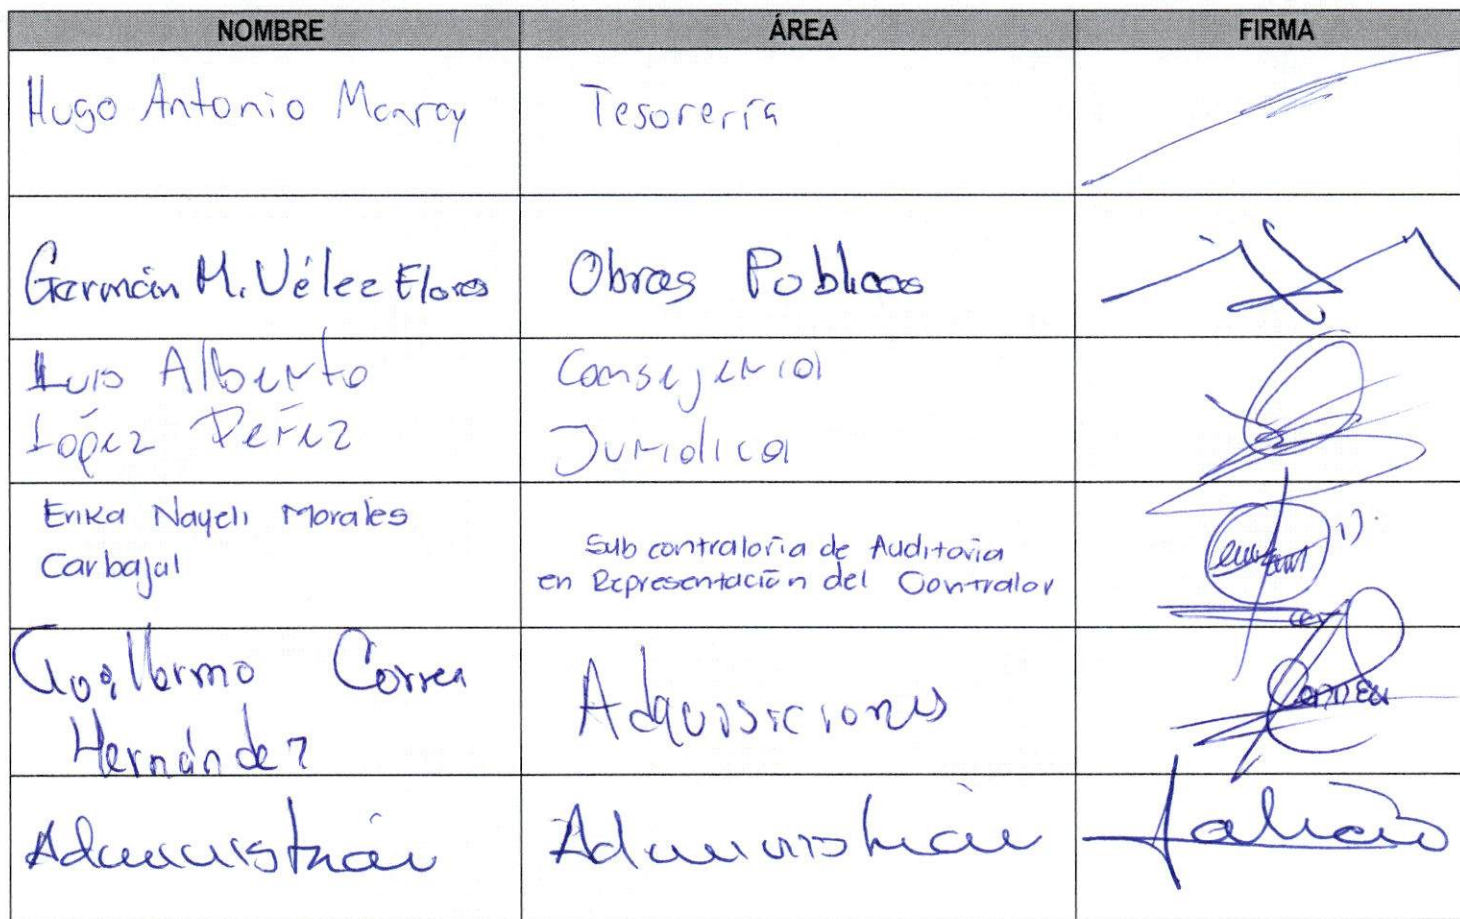 NOMBRE ÁREA FIRMA
Hugo Antonio Monroy Tesorería
Germán M. Vélez Flores Obras Publicas
Luis Alberto Consejeria
López Pérez Juridica
Erika Nayeli Morales
Carbajal
Sub contraloria de Auditoria
en Representación del Contralor
Guillermo Correa
Hernández
Adquisiciones
Correa
Administración Administración